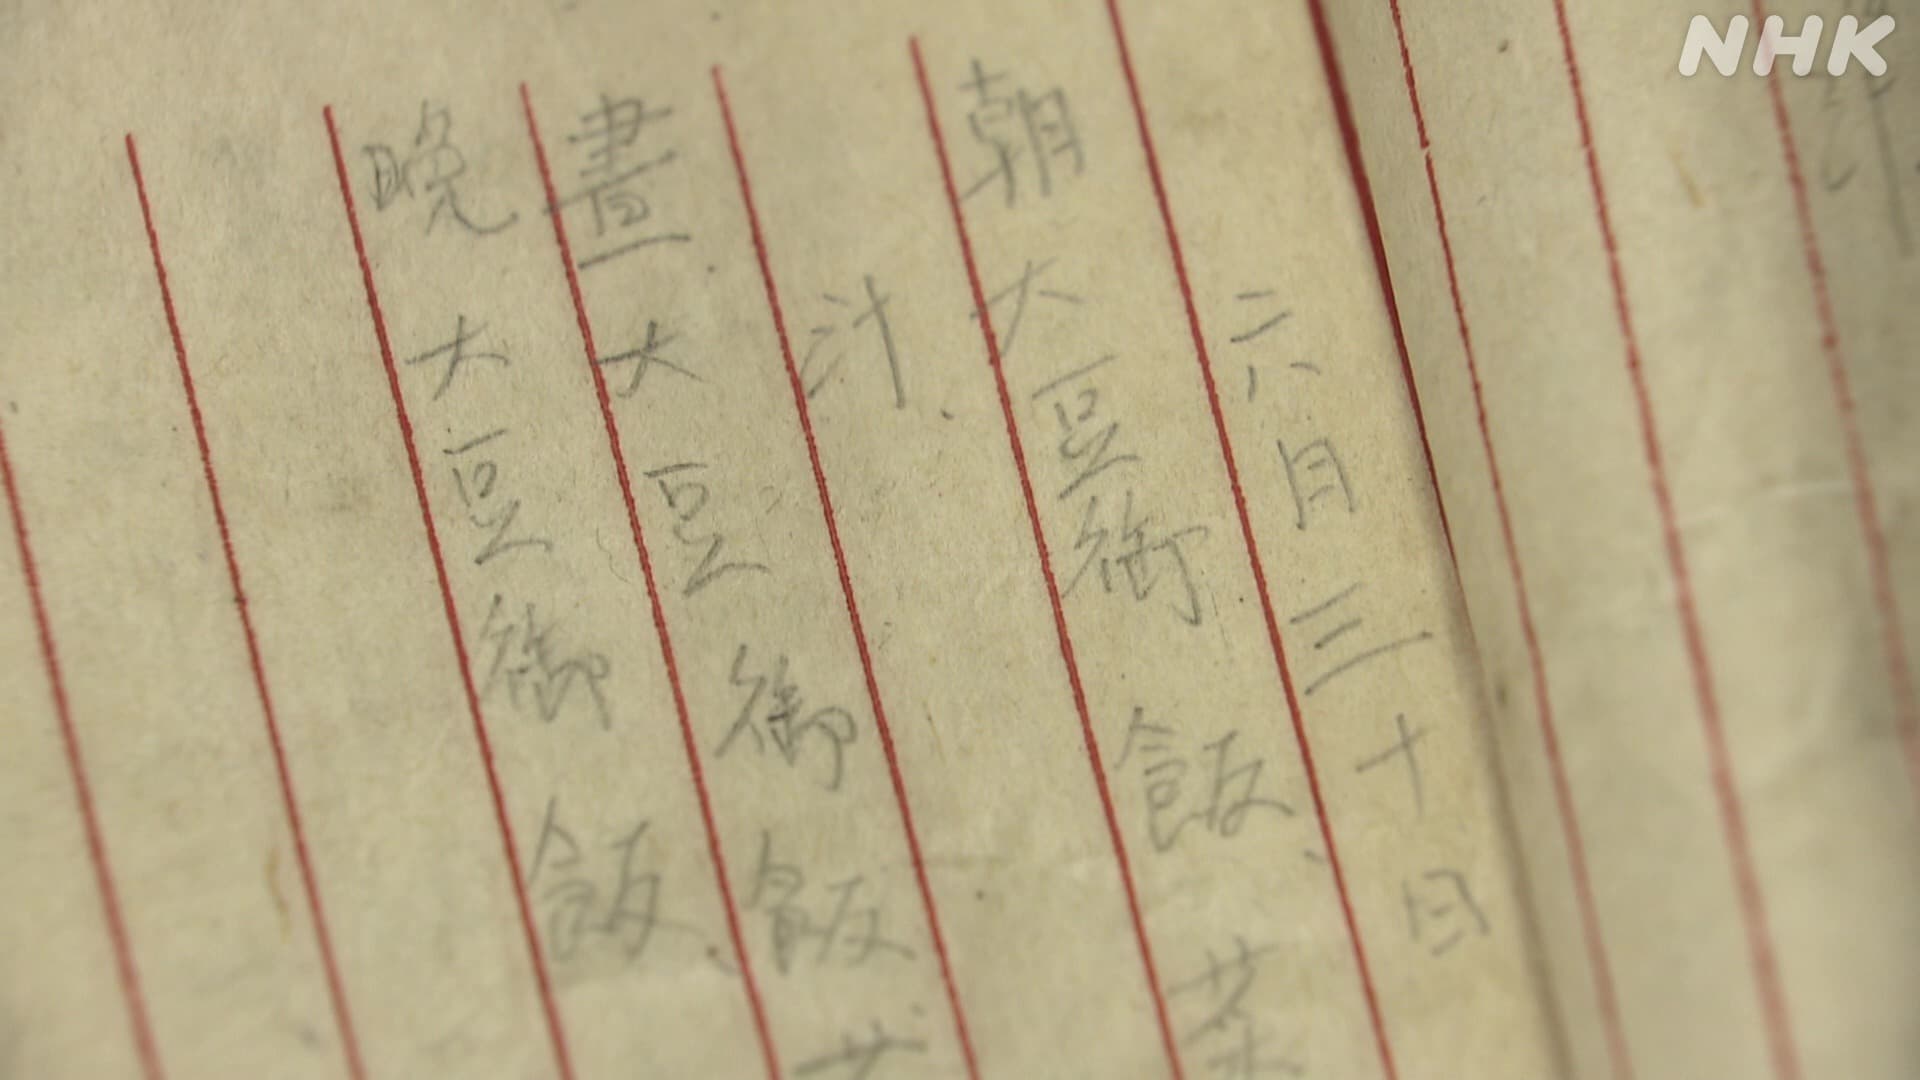 NHK
六月三十日
朝大豆御飯、菜
汁、
晝大豆御飯
晩大豆御飯、